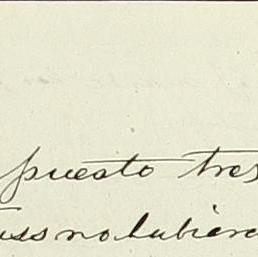 puesto tres
no hubiera